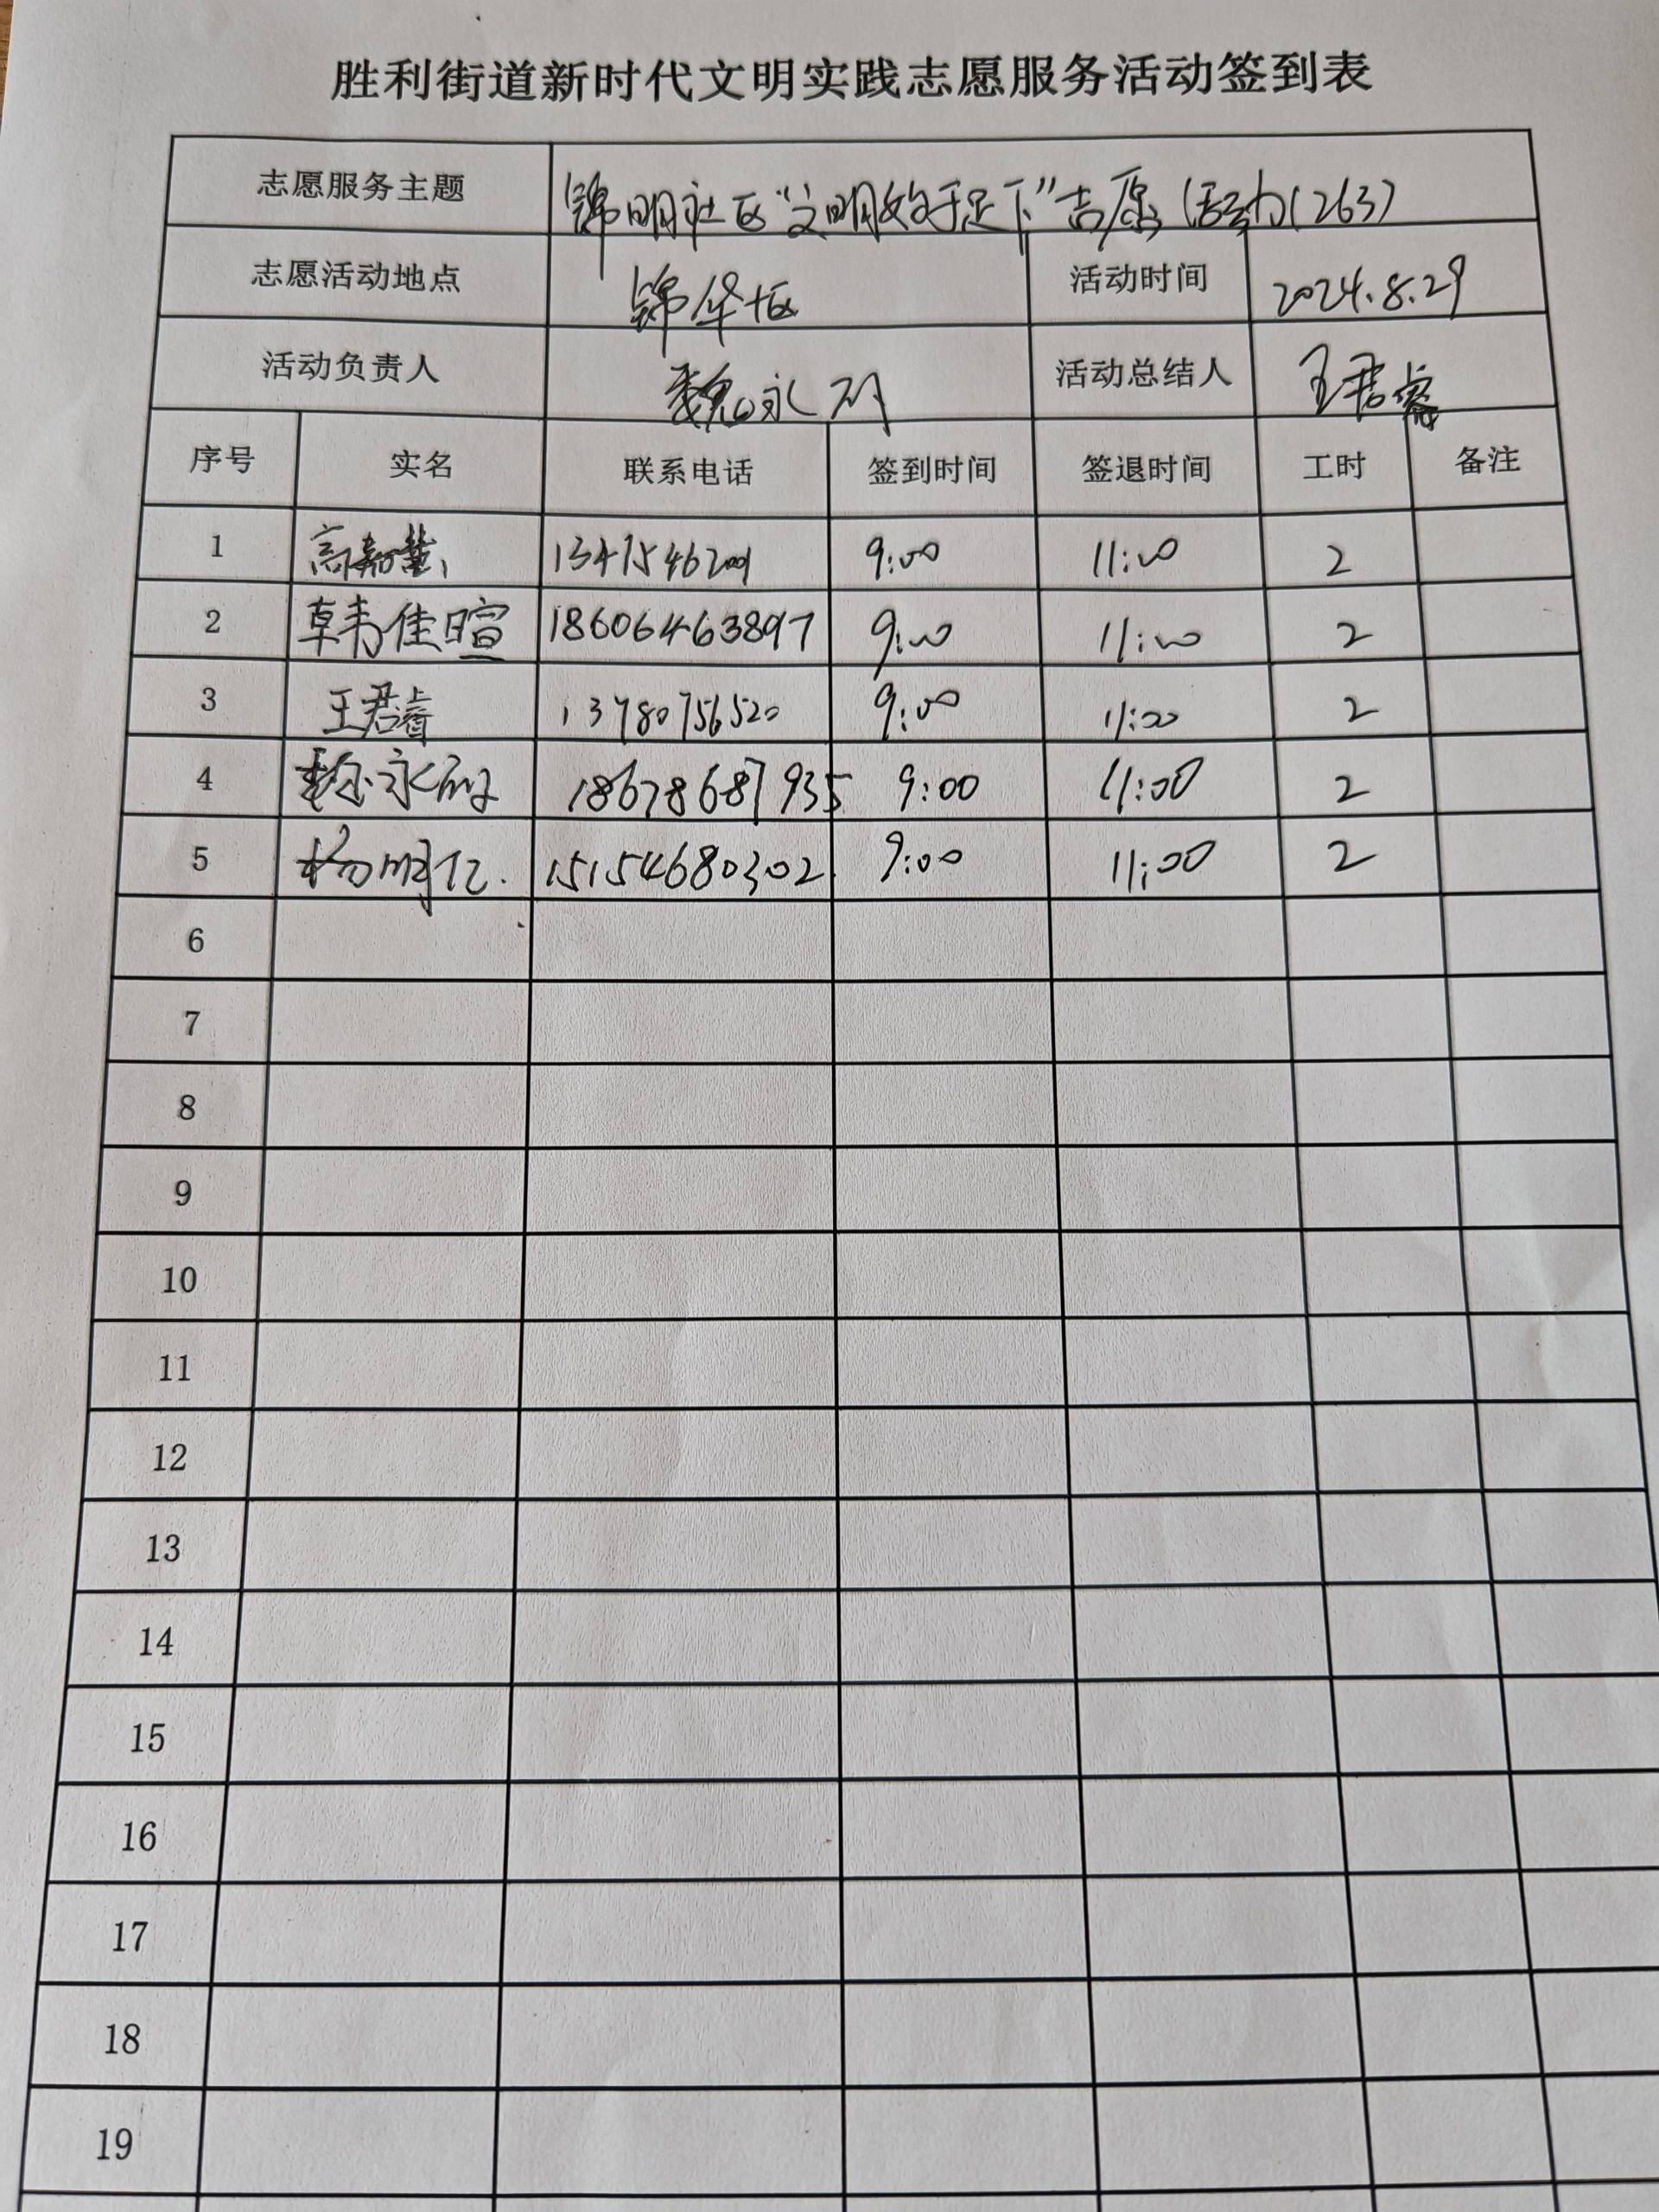 胜利街道新时代文明实践志愿服务活动签到表
志愿服务主题 锦明社区“文明始于足下”志愿活动(263)
志愿活动地点 锦华一区 活动时间 2024.8.29
活动负责人 魏永刚 活动总结人 王君睿
序号 实名 联系电话 签到时间 签退时间 工时 备注
1 高 9:00 11:00 2
2 韩佳暄 18606463897 9:00 11:00 2
3 王君睿 13780756520 9:00 11:00 2
4 魏永刚 18678687935 9:00 11:00 2
5 杨明仁 15154680302 9:00 11:00 2
6
7
8
9
10
11
12
13
14
15
16
17
18
19